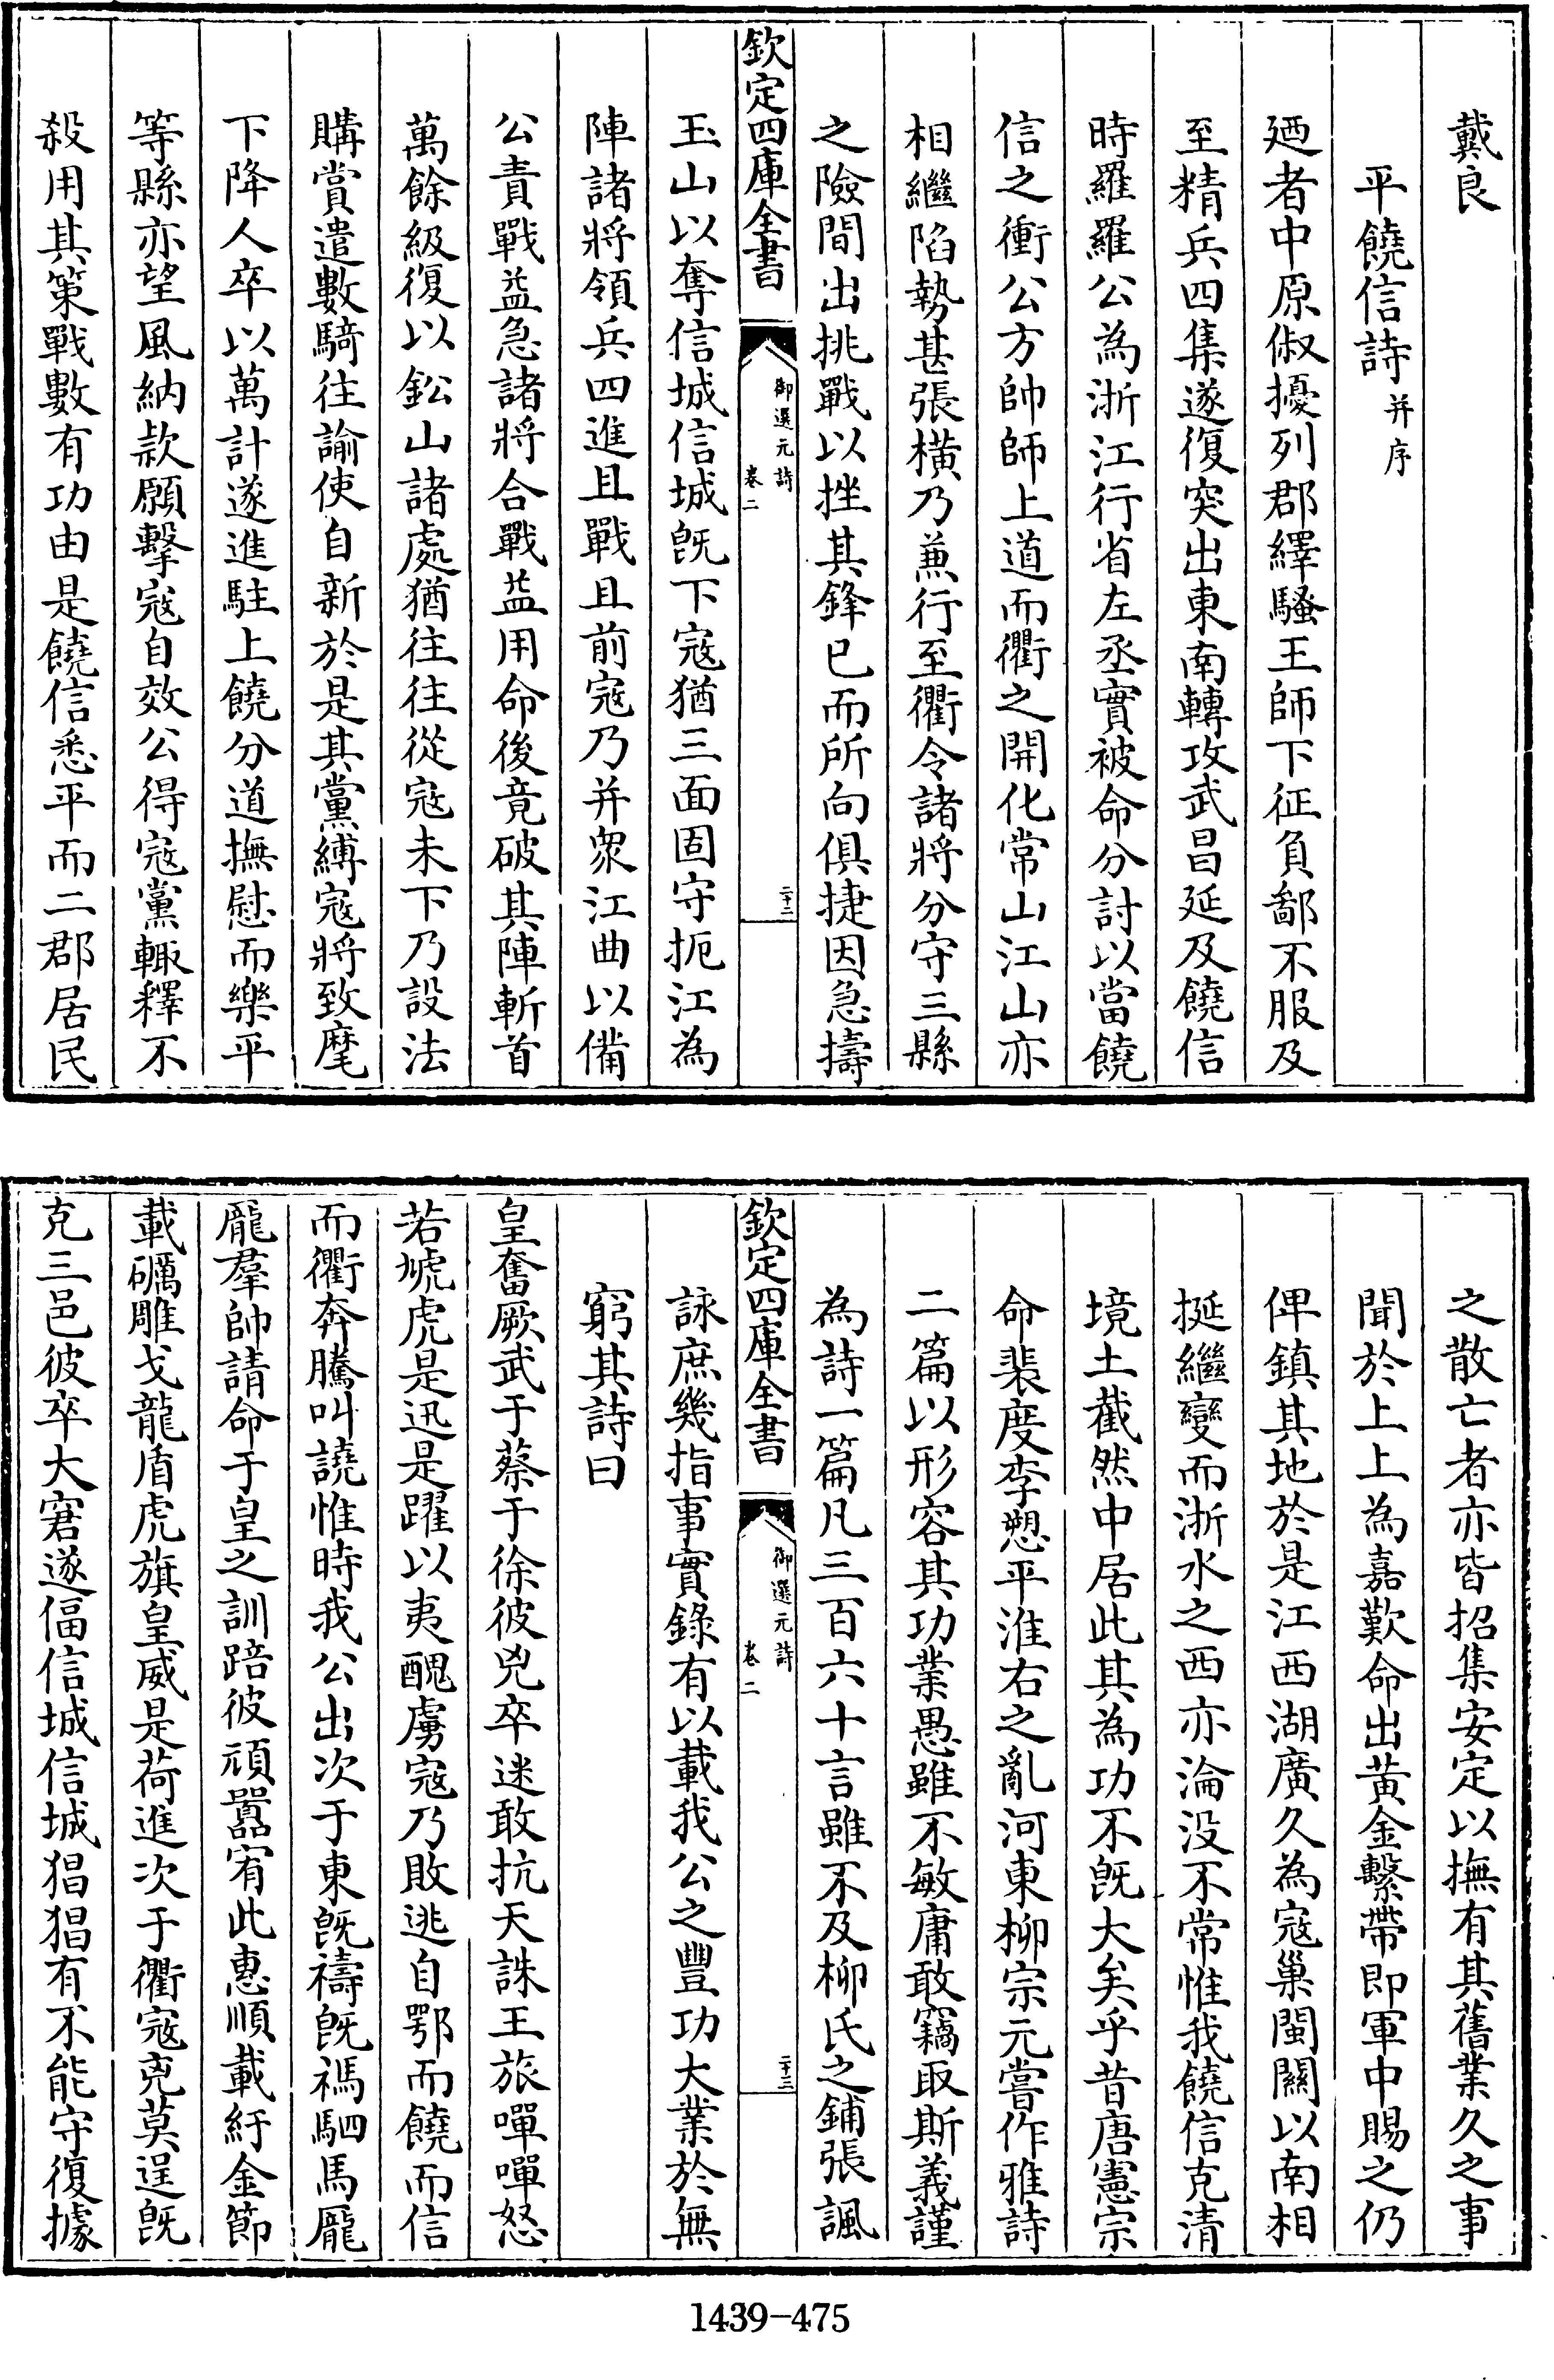 戴良
平饒信詩并序
廼者中原俶擾列郡繹騷王師下征負鄙不服及
至精兵四集遂復突出東南轉攻武昌延及饒信
時羅羅公為浙江行省左丞實被命分討以當饒
信之衝公方帥師上道而衢之開化常山江山亦
相繼陷勢甚張橫乃兼行至衢令諸將分守三縣
之險間出挑戰以挫其鋒已而所向俱捷因急擣
欽定四庫全書
御選元詩
卷二
二十二
玉山以奪信城信城旣下寇猶三面固守扼江為
陣諸將領兵四進且戰且前寇乃并衆江曲以備
公責戰益急諸將合戰益用命後竟破其陣斬首
萬餘級復以鈆山諸處猶往往從寇未下乃設法
購賞遣數騎往諭使自新於是其黨縛寇將致麾
下降人卒以萬計遂進駐上饒分道撫慰而樂平
等縣亦望風納款願擊寇自效公得寇黨輙釋不
殺用其策戰數有功由是饒信悉平而二郡居民
之散亡者亦皆招集安定以撫有其舊業久之事
聞於上上為嘉歎命出黃金繫帶即軍中賜之仍
俾鎮其地於是江西湖廣久為寇巢閩關以南相
挻繼變而浙水之西亦淪没不常惟我饒信克清
境土截然中居此其為功不旣大矣乎昔唐憲宗
命裴度李愬平淮右之亂河東柳宗元嘗作雅詩
二篇以形容其功業愚雖不敏庸敢竊取斯義謹
為詩一篇凡三百六十言雖不及柳氏之鋪張諷
欽定四庫全書
御選元詩
卷二
二十三
詠庶幾指事實錄有以載我公之豐功大業於無
窮其詩曰
皇奮厥武于蔡于徐彼兇卒迷敢抗天誅王旅嘽嘽怒
若虓虎是迅是躍以夷醜虜寇乃敗逃自鄂而饒而信
而衢奔騰叫譊惟時我公出次于東旣禱旣禡駟馬龎
龎羣帥請命于皇之訓踣彼頑嚚宥此惠順載紆金節
載礪雕戈龍盾虎旗皇威是荷進次于衢寇兇莫逞旣
克三邑彼卒大窘遂偪信城信城猖猖有不能守復據
1439-475